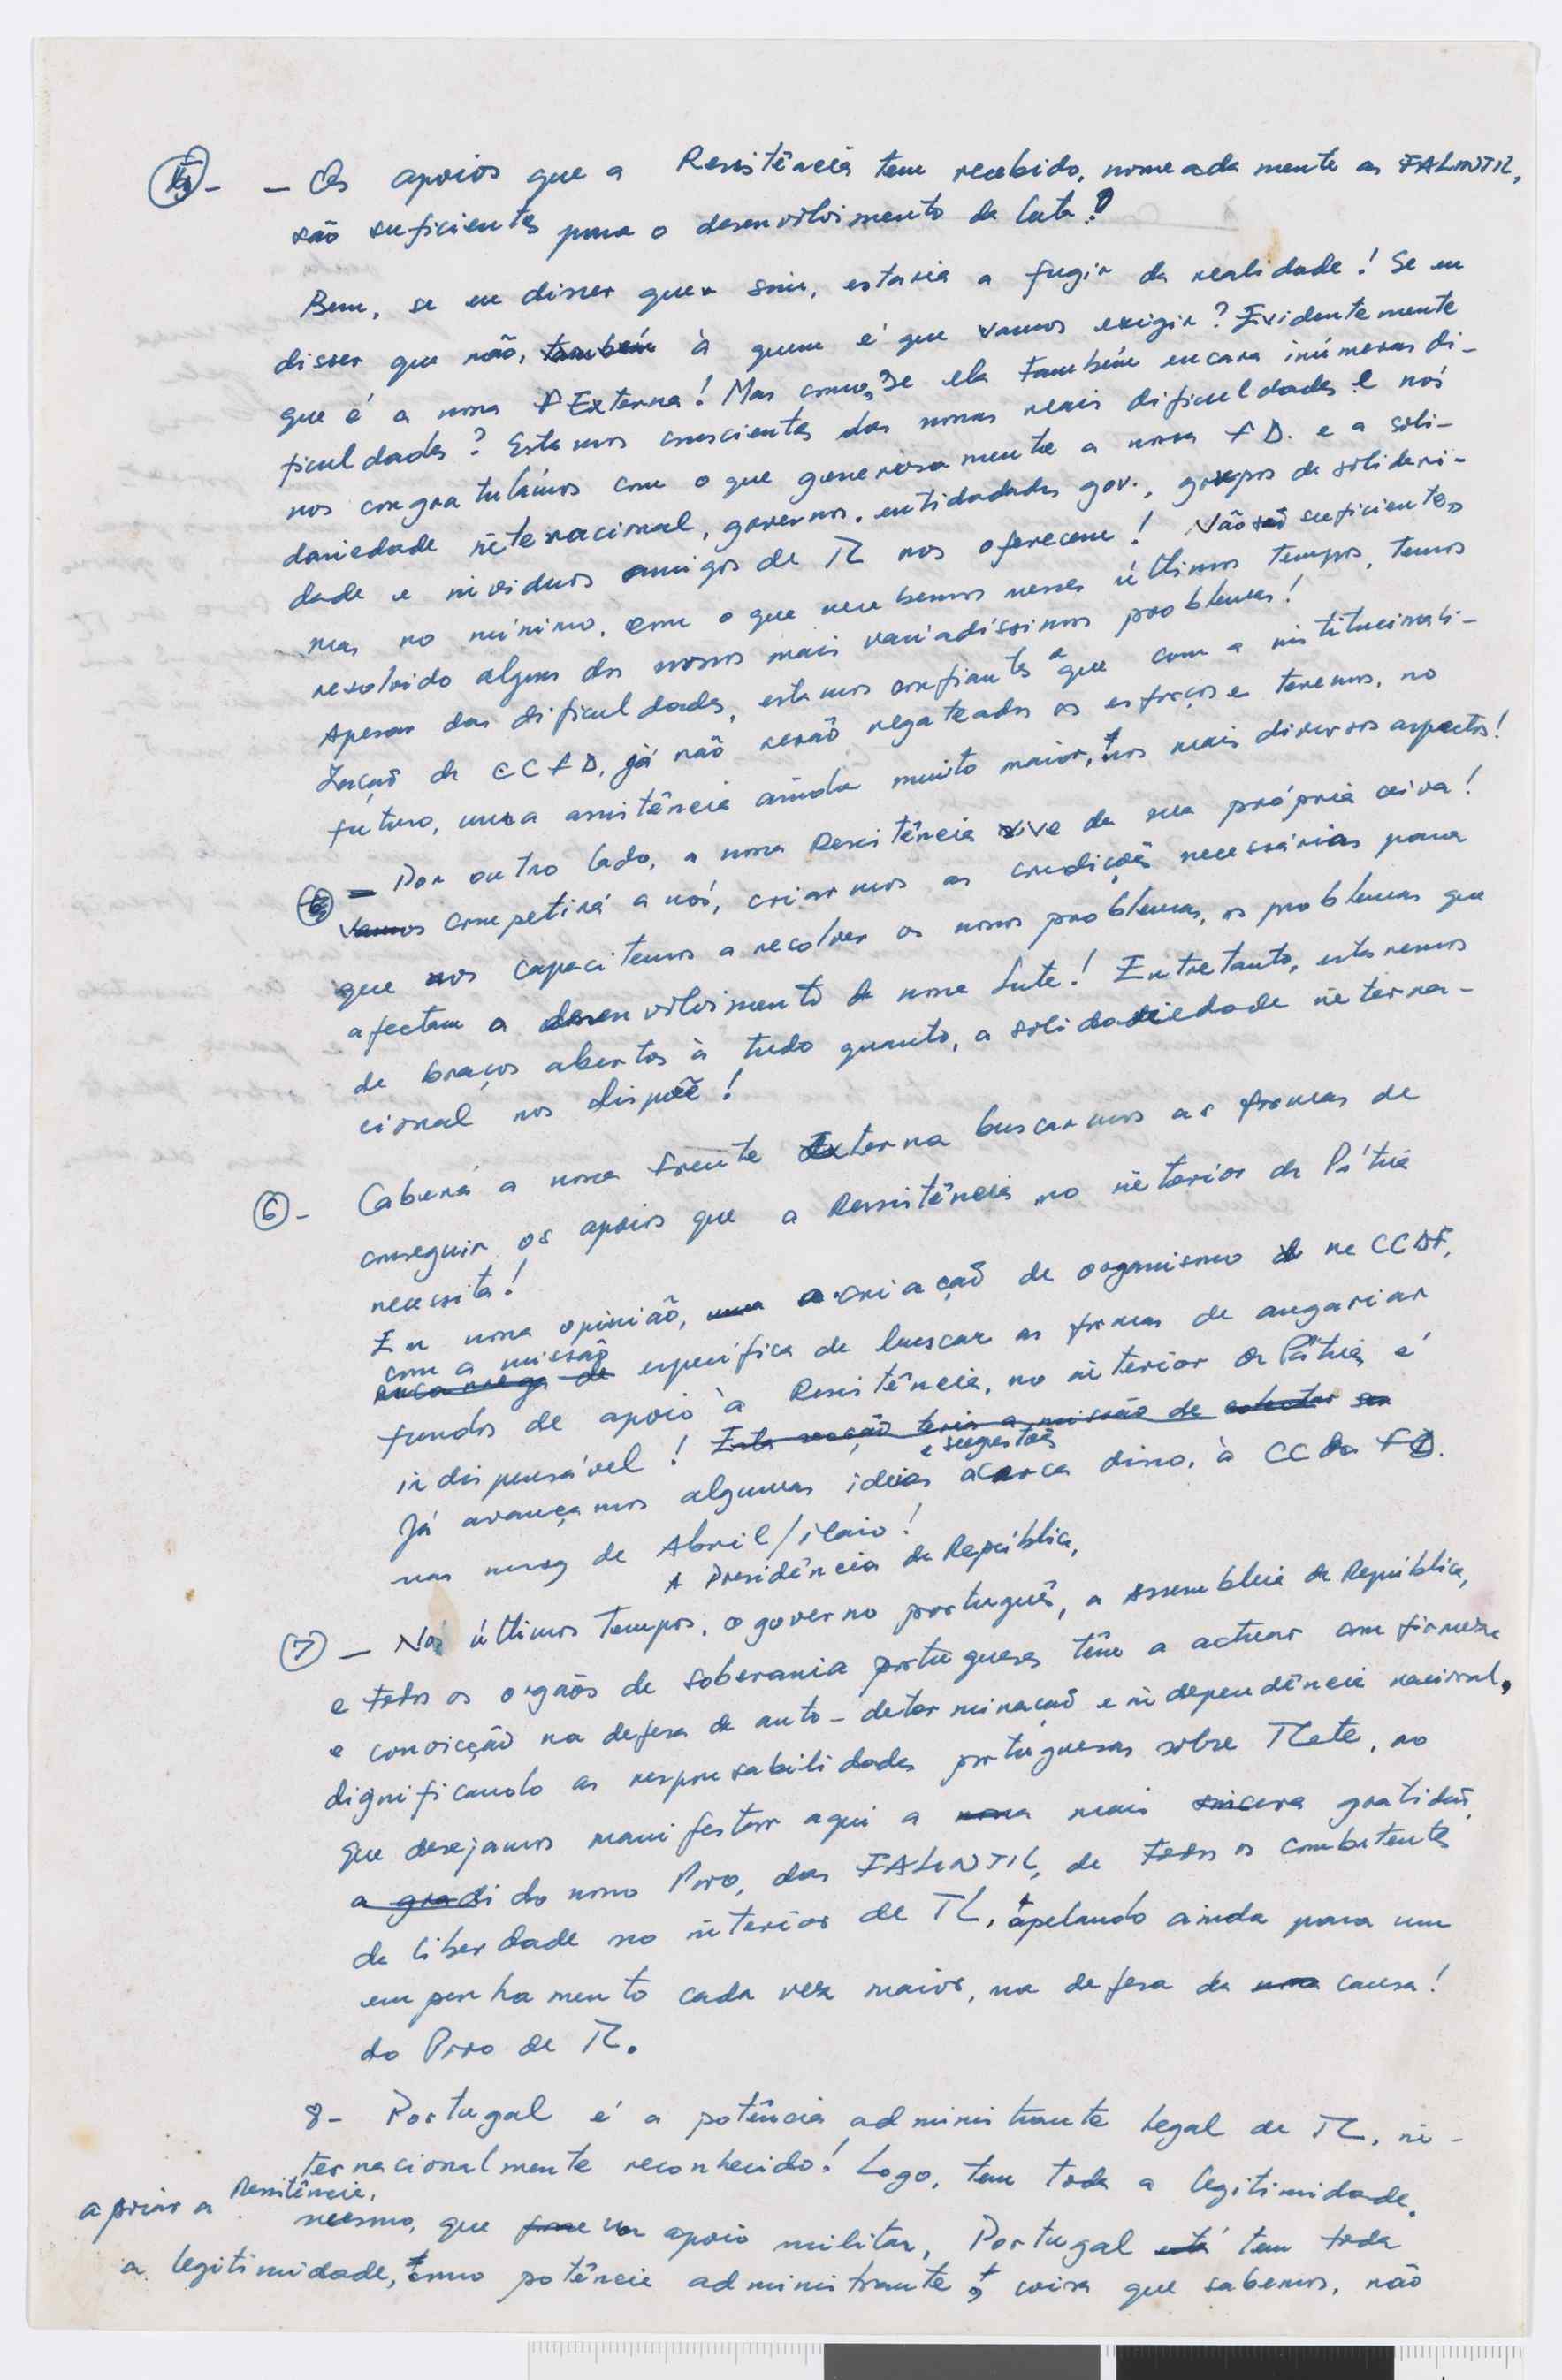 5 - - Os apoios que a Resistência tem recebido, nomeadamente as FALINTIL,
são suficientes para o desenvolvimento da luta?
Bem, se eu disser que sim, estaria a fugir da realidade! Se eu
disser que não, também à quem é que vamos exigir? Evidentemente
que é a nossa F Externa! Mas como, se ela também encara inúmeras di-
ficuldades? Estamos conscientes das nossas reais dificuldades e nós
nos congratulámos com o que generosamente a nossa F D. e a soli-
dariedade internacional, governos, entidadades gov., grupos de solidari-
dade e individuos amigos de TL nos oferecem! Não são suficientes,
mas no mínimo, com o que recebemos nesses últimos tempos, temos
resolvido alguns dos nossos mais variadíssimos problemas!
Apesar das dificuldades, estamos confiantes que com a institucionali-
zação da CCFD, já não serão regateados os esforços e teremos, no
futuro, uma assistência ainda muito maior, nos mais diversos aspectos!
- Por outro lado, a nossa Resistência vive da sua própria seiva!
Vamos competirá a nós, criarmos as condições necessárias para
que nos capacitemos a resolver os nossos problemas, os problemas que
afectam o desenvolvimento da nossa Luta! Entretanto, estaremos
de braços abertos à tudo quanto, a solidariedade interna-
cional nos dispõe!
6 - Caberá a nossa Frente Externa buscarmos as formas de
conseguir os apoios que a Resistência no interior da Pátria
necessita!
Em nossa opinião, uma a criação de organismo na CCDF,
com a missão
encarrega de específica de buscar as formas de angariar
fundos de apoio à Resistência, no interior da Pátria é
indispensável! Esta secção teria a missão de
e sugestões
Já avançamos algumas ideias acerca disso, à CC da FD.
nas mensg de Abril/Maio!
A Presidência da República,
7 - Nos últimos tempos, o governo português, a Assembleia da República,
e todos os orgãos de soberania portugueses têm a actuar com firmeza
e convicção na defesa da auto-determinação e independência nacional,
dignificando as responsabilidades portuguesas sobre TLeste, ao
que desejamos manifestar aqui a nossa mais sincera gratidão,
a gradi do nosso Povo, das FALINTIL, de todos os combatentes
da liberdade no interior de TL, apelando ainda para um
empenhamento cada vez maior, na defesa da causa!
do Povo de TL.
8- Portugal é a potência administrante legal de TL, in-
ternacionalmente reconhecido! Logo, tem toda a legitimidade.
apoiar a Resistência,
mesmo, que apoio militar, Portugal está tem toda
a legitimidade, como potência administrante, coisa que sabemos, não